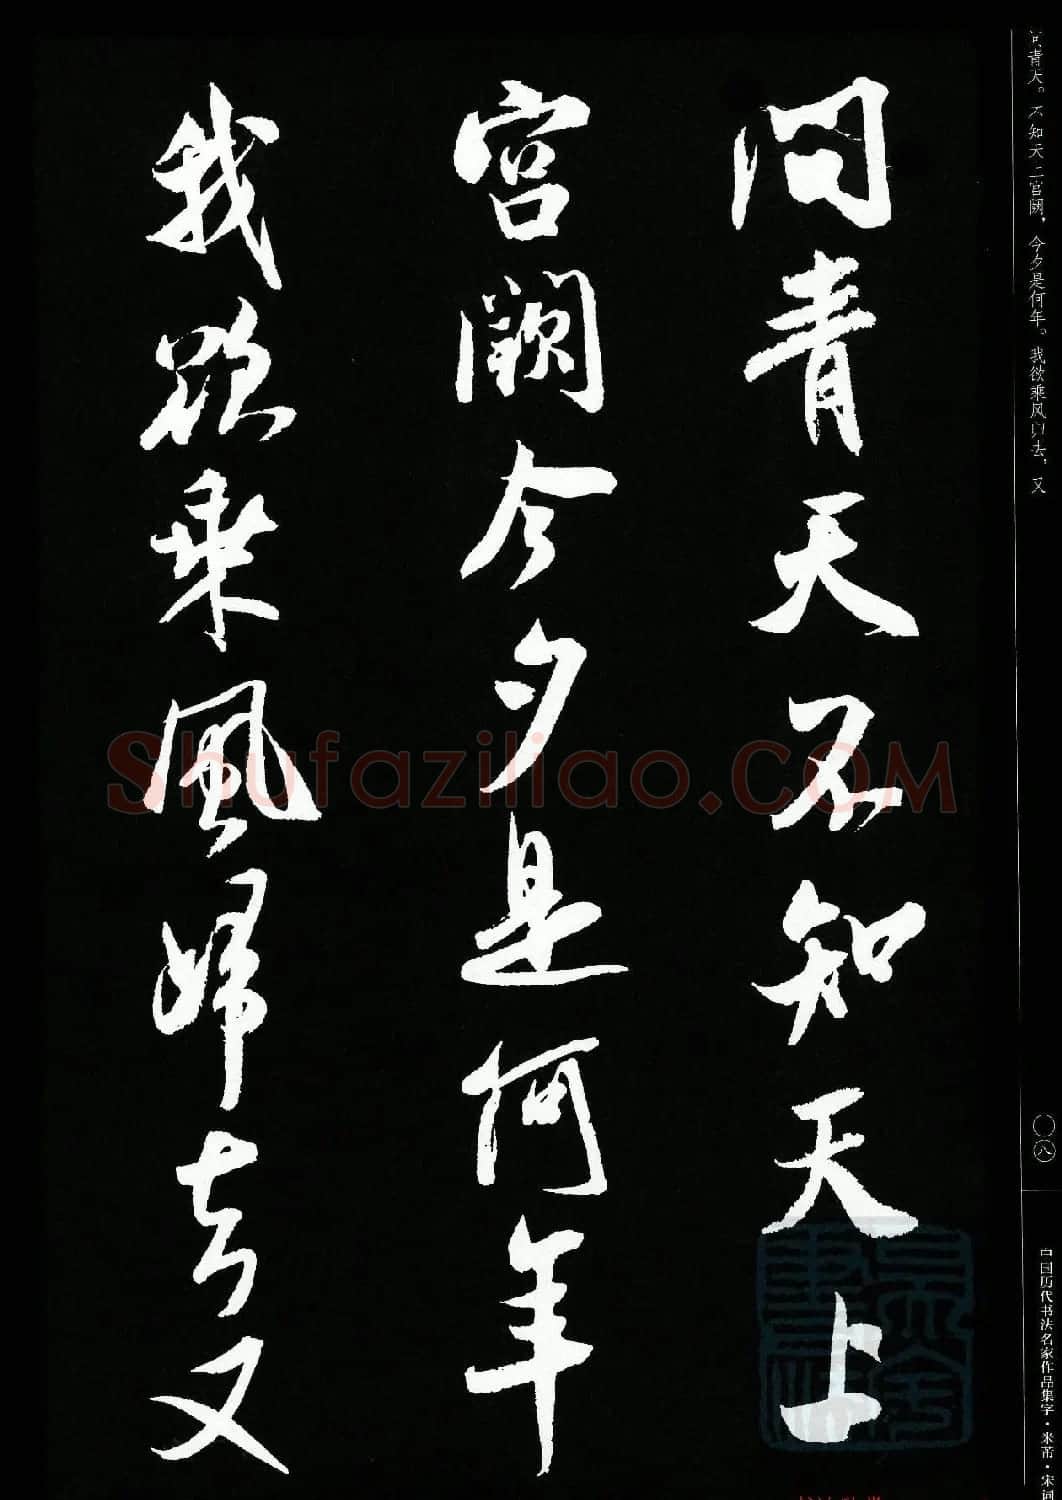 问青天。不知天上宫阙，今夕是何年。我欲乘风归去，又
問青天不知天上
宫闕今夕是何年
我欲乘風歸去又
〇一八
中国历代书法名家作品集字·米芾·宋词
Shufaziliao.COM